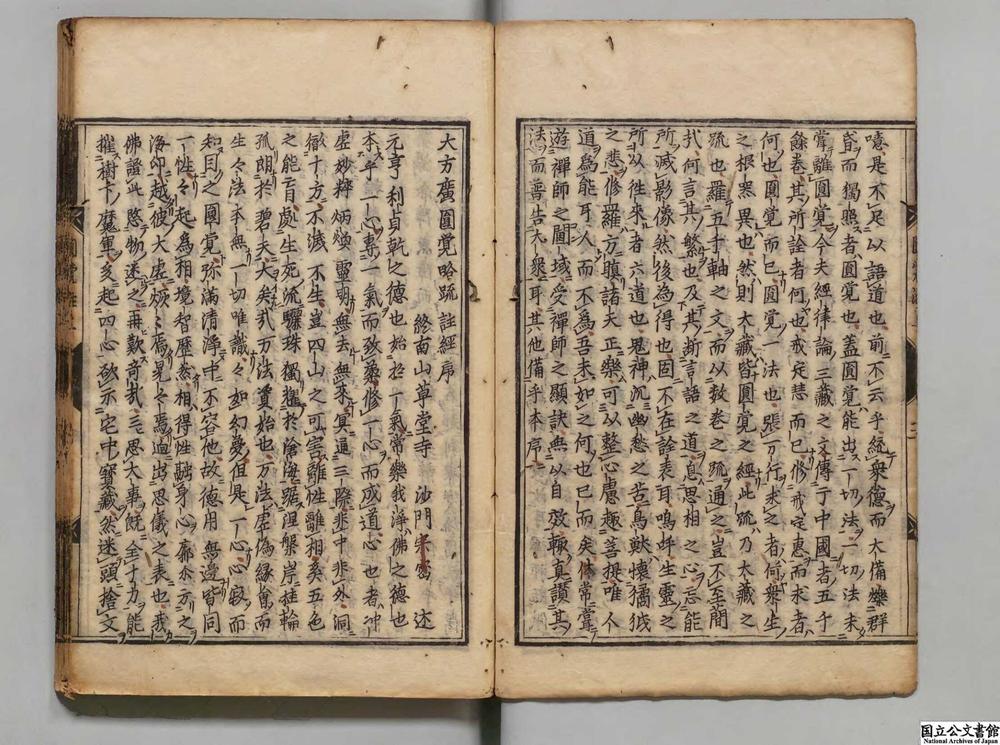 噫是不足以語道也前不云乎統衆德而大備爍群
昏而獨照者圓覺也蓋圓覺能出一切法一切法未
嘗離圓覺今夫經律論三藏之文傳于中國者五千
餘卷其所詮者何也戒定慧而已修戒定惠而求者
何也圓覺而已圓覺一法也張万行求之者何衆生
之根器異也然則大藏皆圓覺之經此疏乃大藏之
疏也羅五千軸之文而以數卷之疏通之豈不至簡
哉何言其繁也及其斷言語之道息思相之心忘能
所滅影像然後為得也固不在詮表耳嗚呼生靈之
所以徃来者六道也鬼神沉幽愁之苦鳥獸懷獝狘
之悲修羅方瞋諸天正樂可以整心慮趣菩提唯人
道為能耳人而不為吾末如之何也已矣休常
遊禪師之閫域受禪師之顯訣無以自效輙真讚其
法而普告大衆耳其他備乎本序
大方廣圓覺略疏註經序
終南山草堂寺 沙門宗密 述
元亨利貞乾之德也始於一氣常樂我淨佛之德也
本乎一心專一氣而致柔修一心而成道心也者冲
虛妙粹炳煥靈明無去無来冥通三際非中非外洞
徹十方不滅不生豈四山之可害離性離相奚五色
之能盲處生死流驪珠獨耀於滄海踞涅槃岸桂輪
孤朗於碧天大矣哉万法資始也万法虛偽緣會而
生々法本無一切唯識々如幻夢但是一心々寂而
知目之圓覺弥滿清淨中不容他故德用無邊皆同
一性々起為相境智歷然相得性融身心廓尓方之
海印越彼大虛恢々焉晃々焉迥出思儀之表也我
佛證此愍物迷之再歎奇哉三思大事既全十力能
摧樹下魔軍爰起四心欲示宅中寶藏然迷頭捨父
国立公文書館
National Archives of Japan